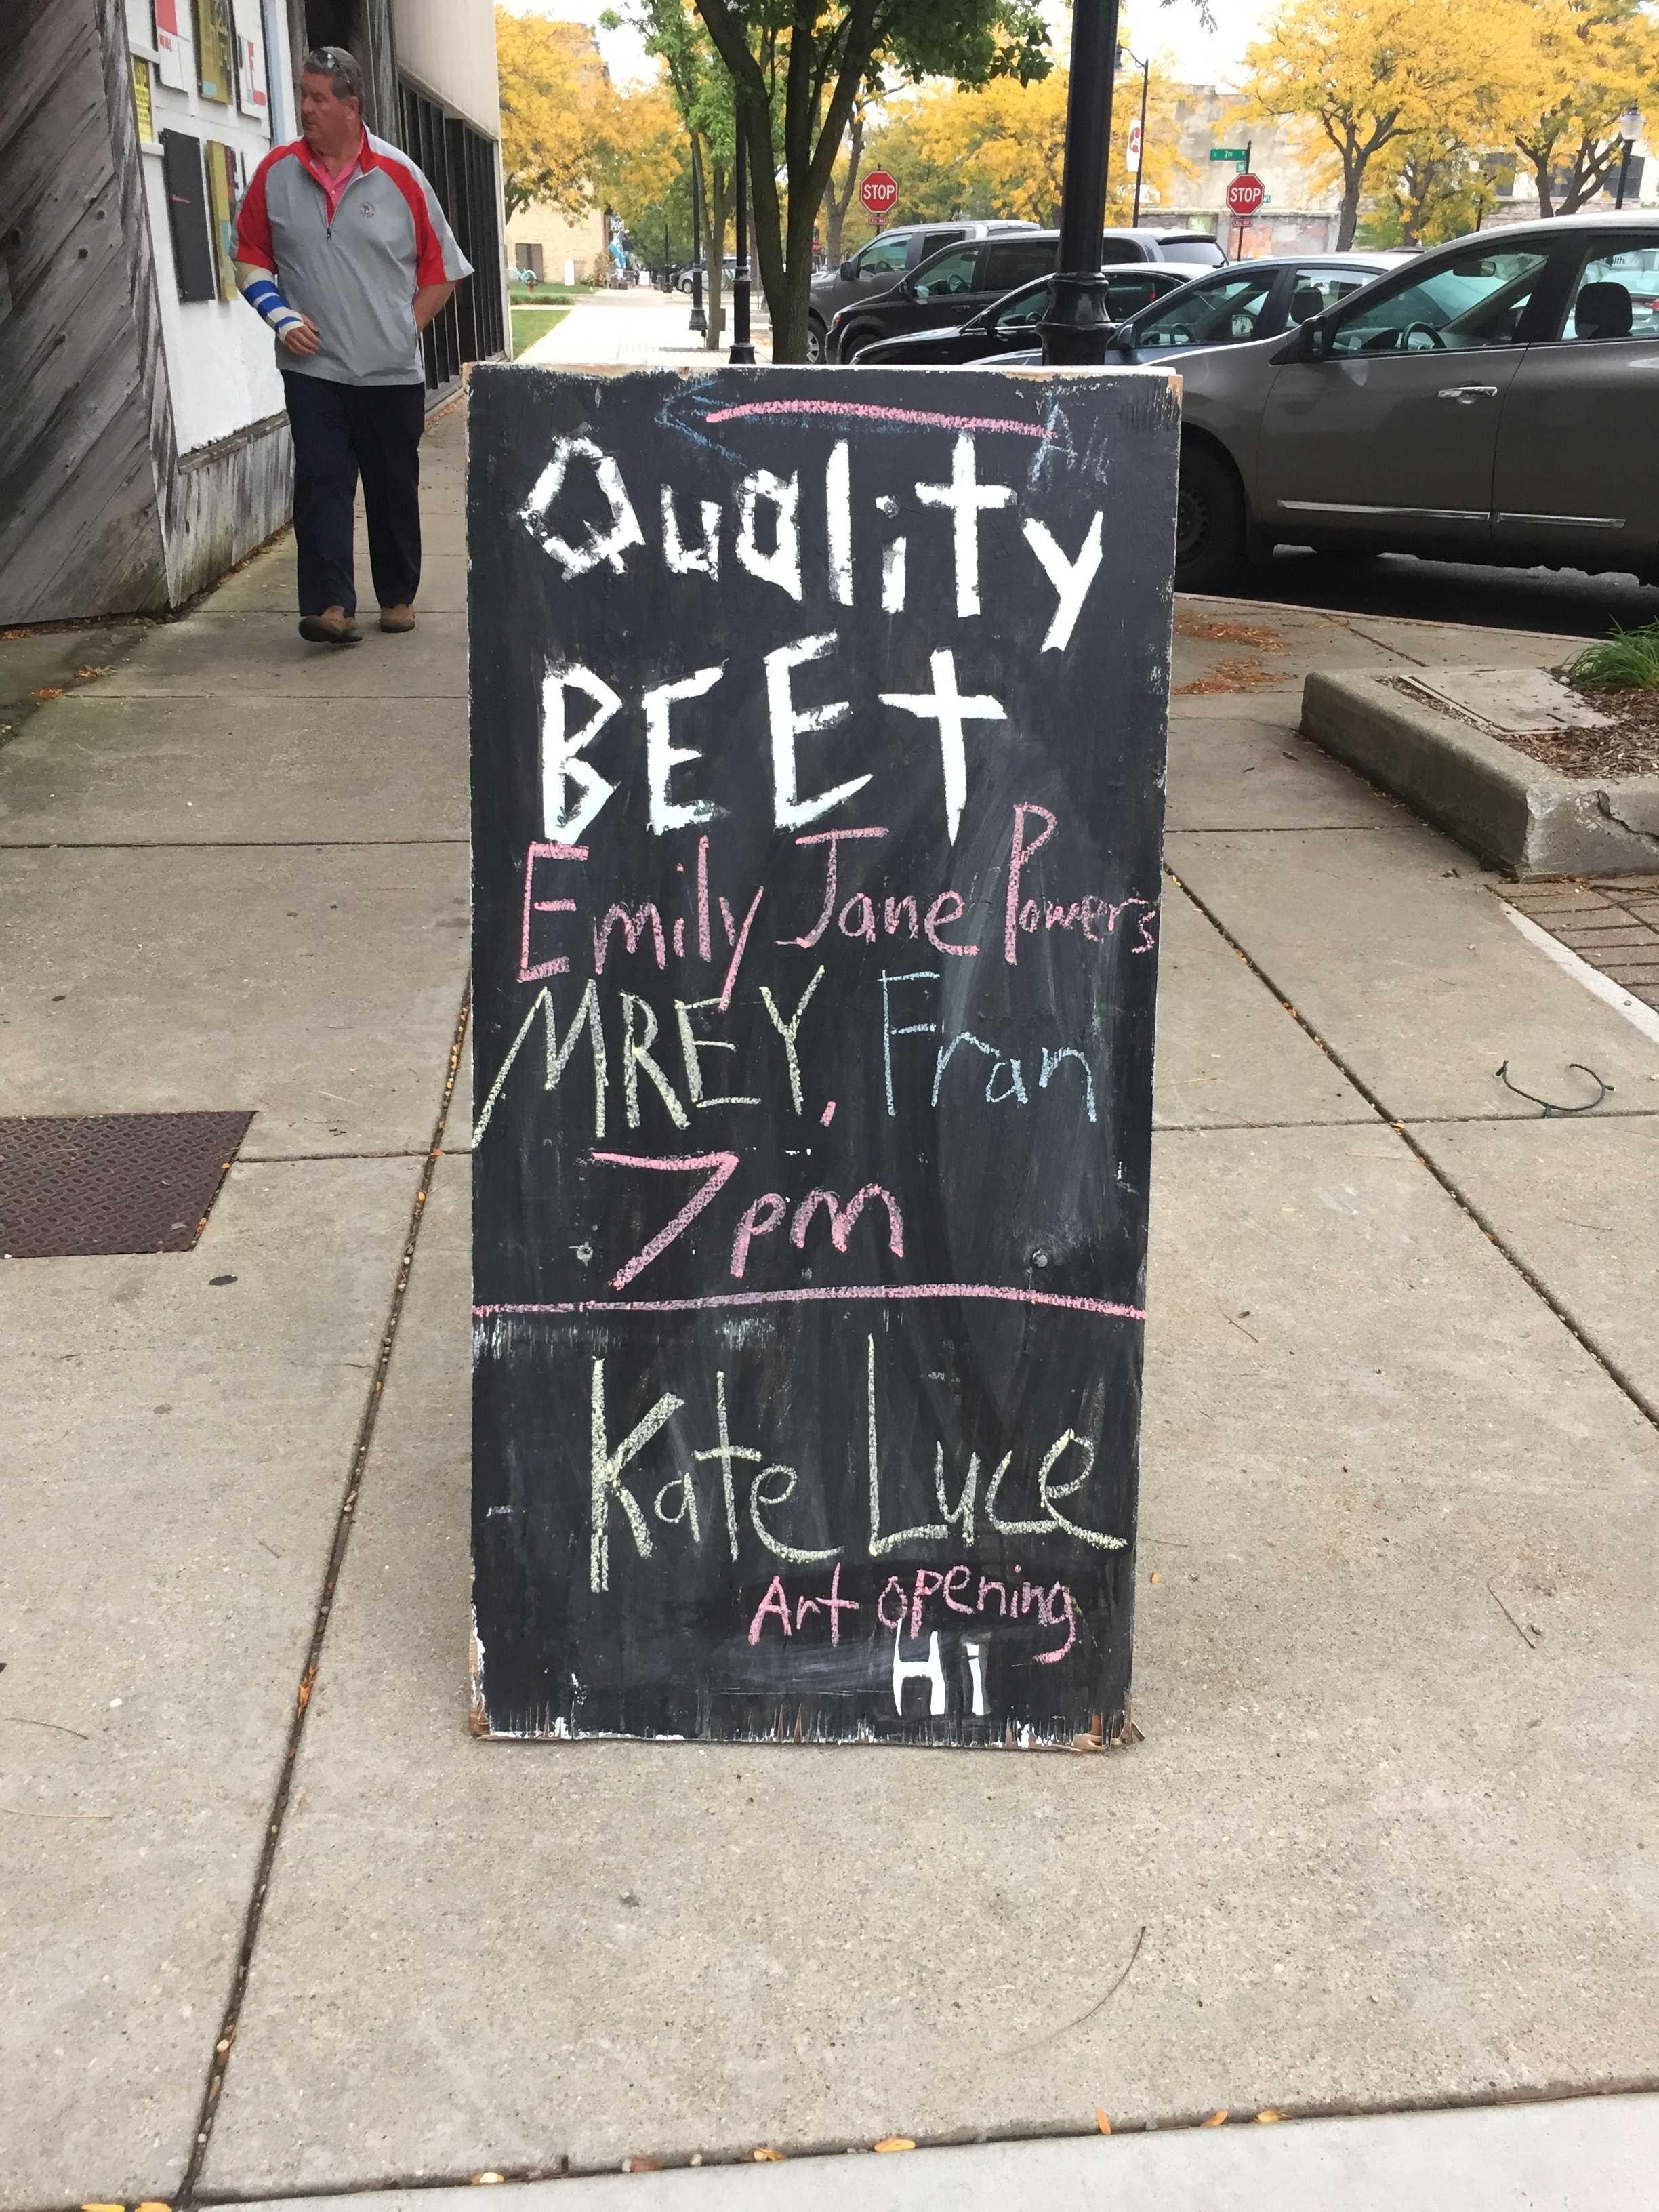 Quality
BEEt
Emily Jane Powers
MREY, Fran
7pm
Kate Luce
Art opening
Hi
STOP
STOP